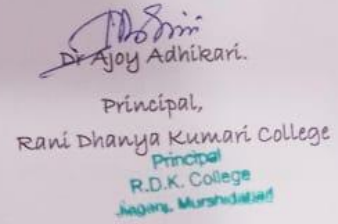 Dr Ajoy Adhikari.
Principal,
Rani Dhanya Kumari College
Principal
R.D.K. College
Jiaganj, Murshidabad